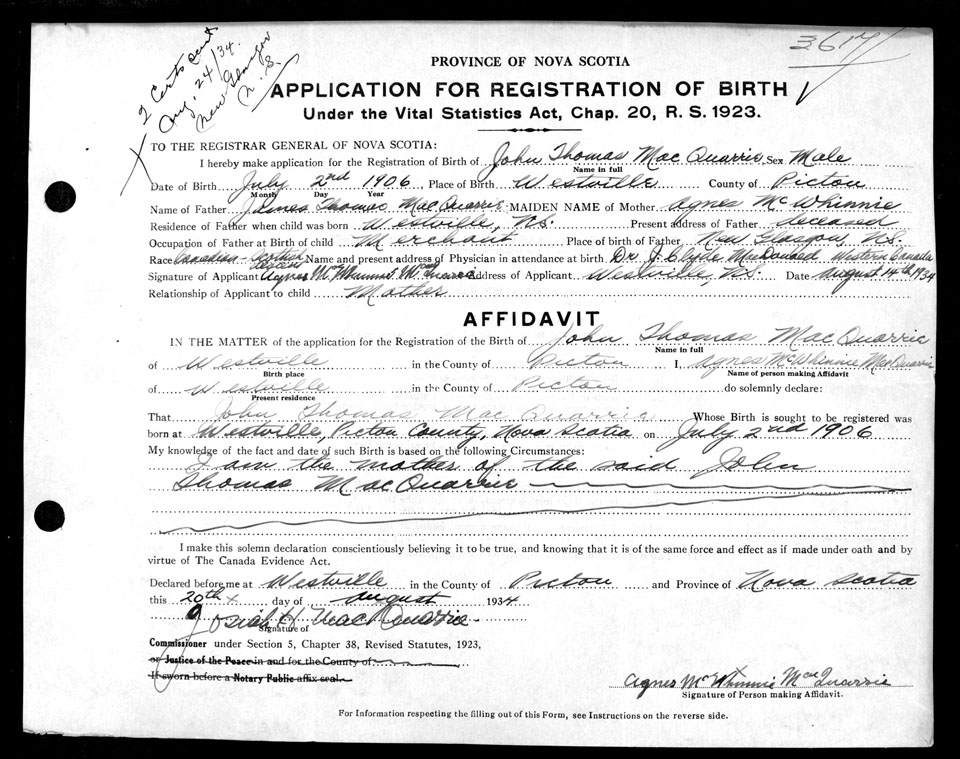 3617
2 Certs sent
Aug. 24/34.
New Glasgow
N. S.
PROVINCE OF NOVA SCOTIA
APPLICATION FOR REGISTRATION OF BIRTH
Under the Vital Statistics Act, Chap. 20, R. S. 1923.
TO THE REGISTRAR GENERAL OF NOVA SCOTIA:
I hereby make application for the Registration of Birth of John Thomas MacQuarrie Sex Male
Name in full
Date of Birth July 2nd 1906 Place of Birth Westville County of Pictou
Month Day Year
Name of Father James Thomas MacQuarrie MAIDEN NAME of Mother Agnes McWhinnie
Residence of Father when child was born Westville, N.S. Present address of Father deceased
Occupation of Father at Birth of child Merchant Place of birth of Father New Glasgow, N.S.
Race Canadian-Scottish Descent Name and present address of Physician in attendance at birth Dr. J. Clyde MacDonald Western Canada
Signature of Applicant Agnes Address of Applicant Westville, N.S. Date August 14th 1934
Relationship of Applicant to child Mother
AFFIDAVIT
IN THE MATTER of the application for the Registration of the Birth of John Thomas MacQuarrie
Name in full
of Westville in the County of Pictou I, Agnes McWhinnie MacQuarrie
Birth place Name of person making Affidavit
of Westville in the County of Pictou do solemnly declare:
Present residence
That John Thomas MacQuarrie Whose Birth is sought to be registered was
born at Westville, Pictou County, Nova Scotia on July 2nd 1906
My knowledge of the fact and date of such Birth is based on the following Circumstances:
I am the mother of the said John
Thomas MacQuarrie
I make this solemn declaration conscientiously believing it to be true, and knowing that it is of the same force and effect as if made under oath and by
virtue of The Canada Evidence Act.
Declared before me at Westville in the County of Pictou and Province of Nova Scotia
this 20th day of August 1934
Josiah H MacQuarrie
Signature of
Commissioner under Section 5, Chapter 38, Revised Statutes, 1923,
or Justice of the Peace in and for the County of
If sworn before a Notary Public affix seal.
Agnes McWhinnie MacQuarrie
Signature of Person making Affidavit.
For Information respecting the filling out of this Form, see Instructions on the reverse side.